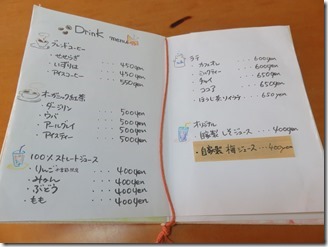 Drink menu
ブレンドコーヒー
・せせらぎ ・・・450yen
・いずりは ・・・450yen
・アイスコーヒー ・・・550yen
オーガニック紅茶
・ダージリン 500yen
・ウバ 500yen
・アールグレイ 500yen
・アイスティー 500yen
100%ストレートジュース
・りんご 400yen
・みかん 400yen
・ぶどう 400yen
・もも 400yen
ラテ
・カフェオレ ・・・600yen
・ミルクティー ・・・600yen
・チャイ ・・・650yen
・ココア ・・・650yen
・ほうじ茶ソイラテ ・・・650yen
オリジナル
・自家製 しそジュース ・・・400yen
・自家製 梅ジュース ・・・400yen